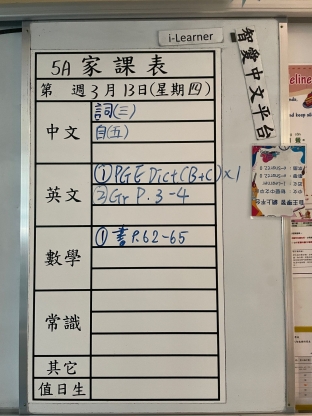 i-Learner
智愛中文平台
5A 家課表
第 週 3月13日(星期四)
中文
詞(三)
自(五)
英文
① PGE Dict (B+C) x1
② Gr P. 3-4
數學
① 書 P.62-65
常識
其它
值日生